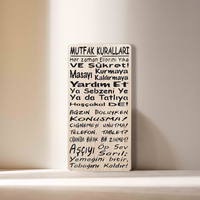 MUTFAK KURALLARI
Her zaman Ellerini Yıka
VE Şükret!
Masayı Kurmaya
Kaldırmaya
Yardım Et
Ya Sebzeni Ye
Ya da Tatlıya
Hoşçakal DE!
AĞZIN DOLUYKEN
KONUŞMA!
ÇİĞNEMEYİ UNUTMA!
TELEFON, TABLET?
BİR ZAHMET!
Aşçıyı Öp Sev
Sarıl,
Yemeğini bitir,
Tabağını Kaldır!